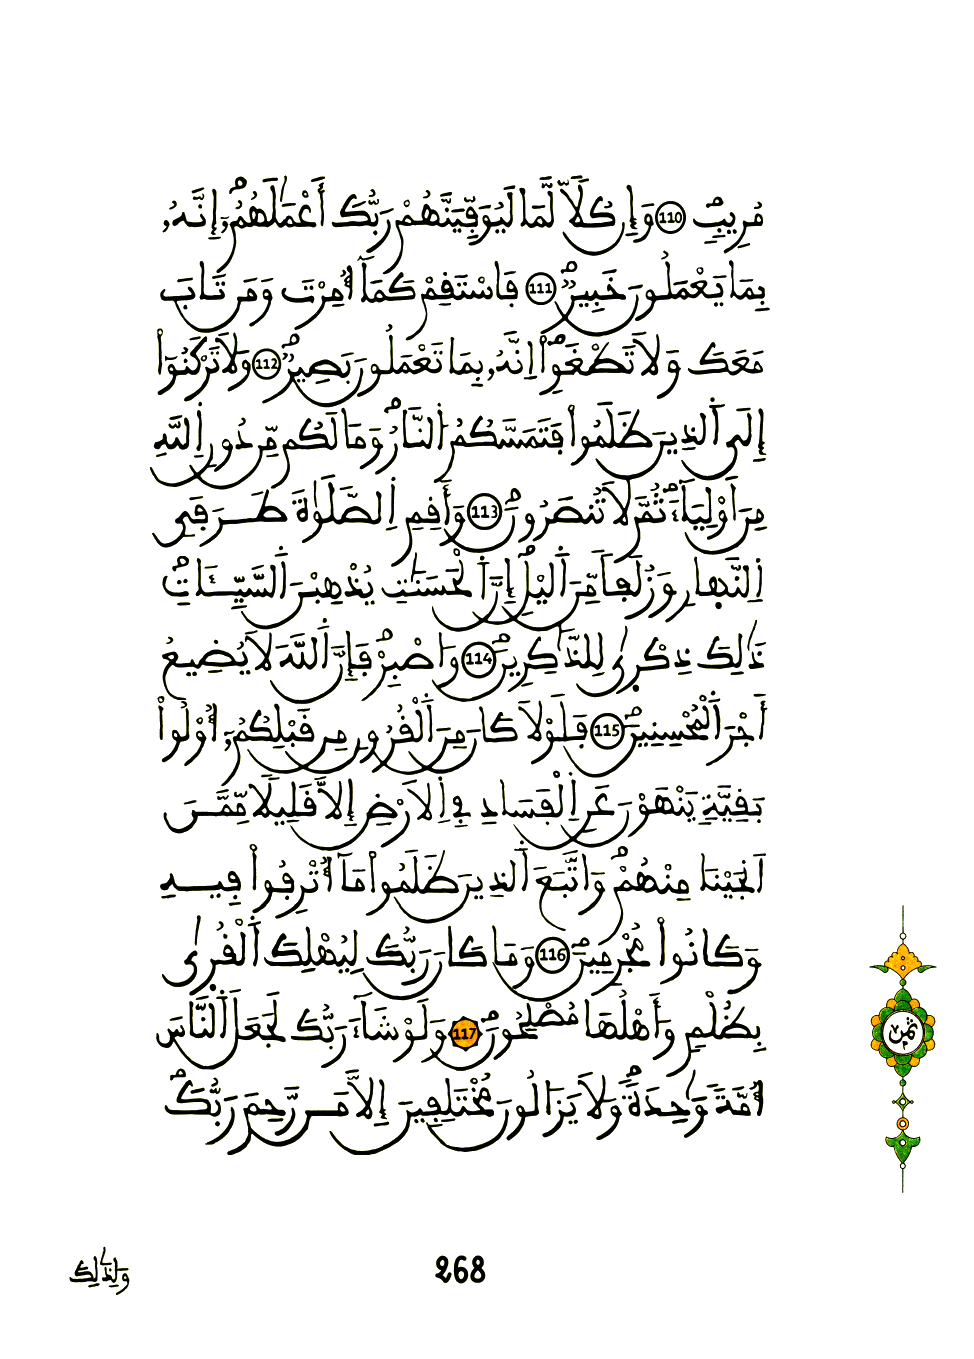 مُرِيبٍ 110 وَإِن كُلّاٗ لَّمَا لَيُوَفِّيَنَّهُمْ رَبُّكَ أَعْمَٰلَهُمُۥٓ إِنَّهُۥ
بِمَا يَعْمَلُونَ خَبِيرٞ 111 فَاسْتَقِمْ كَمَآ أُمِرْتَ وَمَن تَابَ
مَعَكَ وَلَا تَطْغَوِاْۖ اِنَّهُۥ بِمَا تَعْمَلُونَ بَصِيرٞ 112 وَلَا تَرْكَنُوٓاْ
إِلَى اَ۬لذِينَ ظَلَمُواْ فَتَمَسَّكُمُ اُ۬لنَّارُۖ وَمَا لَكُم مِّن دُونِ اِ۬للَّهِ
مِنَ اَوْلِيَآءَۖ ثُمَّ لَا تُنصَرُونَۖ 113 وَأَقِمِ اِ۬لصَّلَوٰةَ طَرَفَيِ
اِ۬لنَّهارِ وَزُلَفاٗ مِّنَ اَ۬ليْلِۖ إِنَّ اَ۬لْحَسَنَٰتِ يُذْهِبْنَ اَ۬لسَّيِّـَٔاتِۖ
ذَٰلِكَ ذِكْر۪ىٰ لِلذَّٰكِرِينَۖ 114 وَاصْبِرْۖ فَإِنَّ اَ۬للَّهَ لَا يُضِيعُ
أَجْرَ اَ۬لْمُحْسِنِينَۖ 115 فَلَوْلَا كَانَ مِنَ اَ۬لْقُرُونِ مِن قَبْلِكُمُۥٓ أُوْلُواْ
بَقِيَّةٖ يَنْهَوْنَ عَنِ اِ۬لْفَسَادِ فِي اِ۬لَارْضِ إِلَّا قَلِيلاٗ مِّمَّنَ
اَنجَيْنَا مِنْهُمْۖ وَاتَّبَعَ اَ۬لذِينَ ظَلَمُواْ مَآ أُتْرِفُواْ فِيهِ
وَكَانُواْ مُجْرِمِينَۖ 116 وَمَا كَانَ رَبُّكَ لِيُهْلِكَ اَ۬لْقُر۪ىٰ
بِظُلْمٖ وَأَهْلُهَا مُصْلِحُونَۖ 117 وَلَوْ شَآءَ رَبُّكَ لَجَعَلَ اَ۬لنَّاسَ
أُمَّةٗ وَٰحِدَةٗۖ وَلَا يَزَالُونَ مُخْتَلِفِينَ إِلَّا مَن رَّحِمَ رَبُّكَۖ
ثمن
وَلِذَٰلِكَ
268